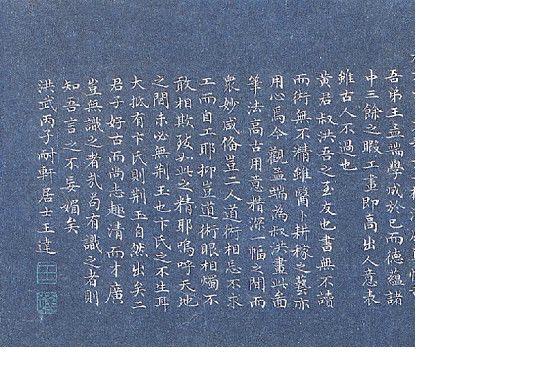 吾弟王孟端學成於己而德蘊諸
中三餘之暇工畫即高出人意表
雖古人不過也
黃君叔洪吾之至友也書無不讀
而術無不精雖醫卜耕稼之藝亦
用心焉今觀孟端為叔洪畫此啚
筆法高古用意精深一幅之間而
眾妙咸俻豈二人道術相忘不求
工而自工耶抑豈道術眼相燭不
敢相欺致如此之精耶嗚呼天地
之間未必無荆玉也卞氏之不生耳
大抵有卞氏則荆玉自然出矣二
君子好古而尚志趣清而才廣
豈無識之者哉苟有識之者則
知吾言之不妄媚矣
洪武丙子耐軒居士王達